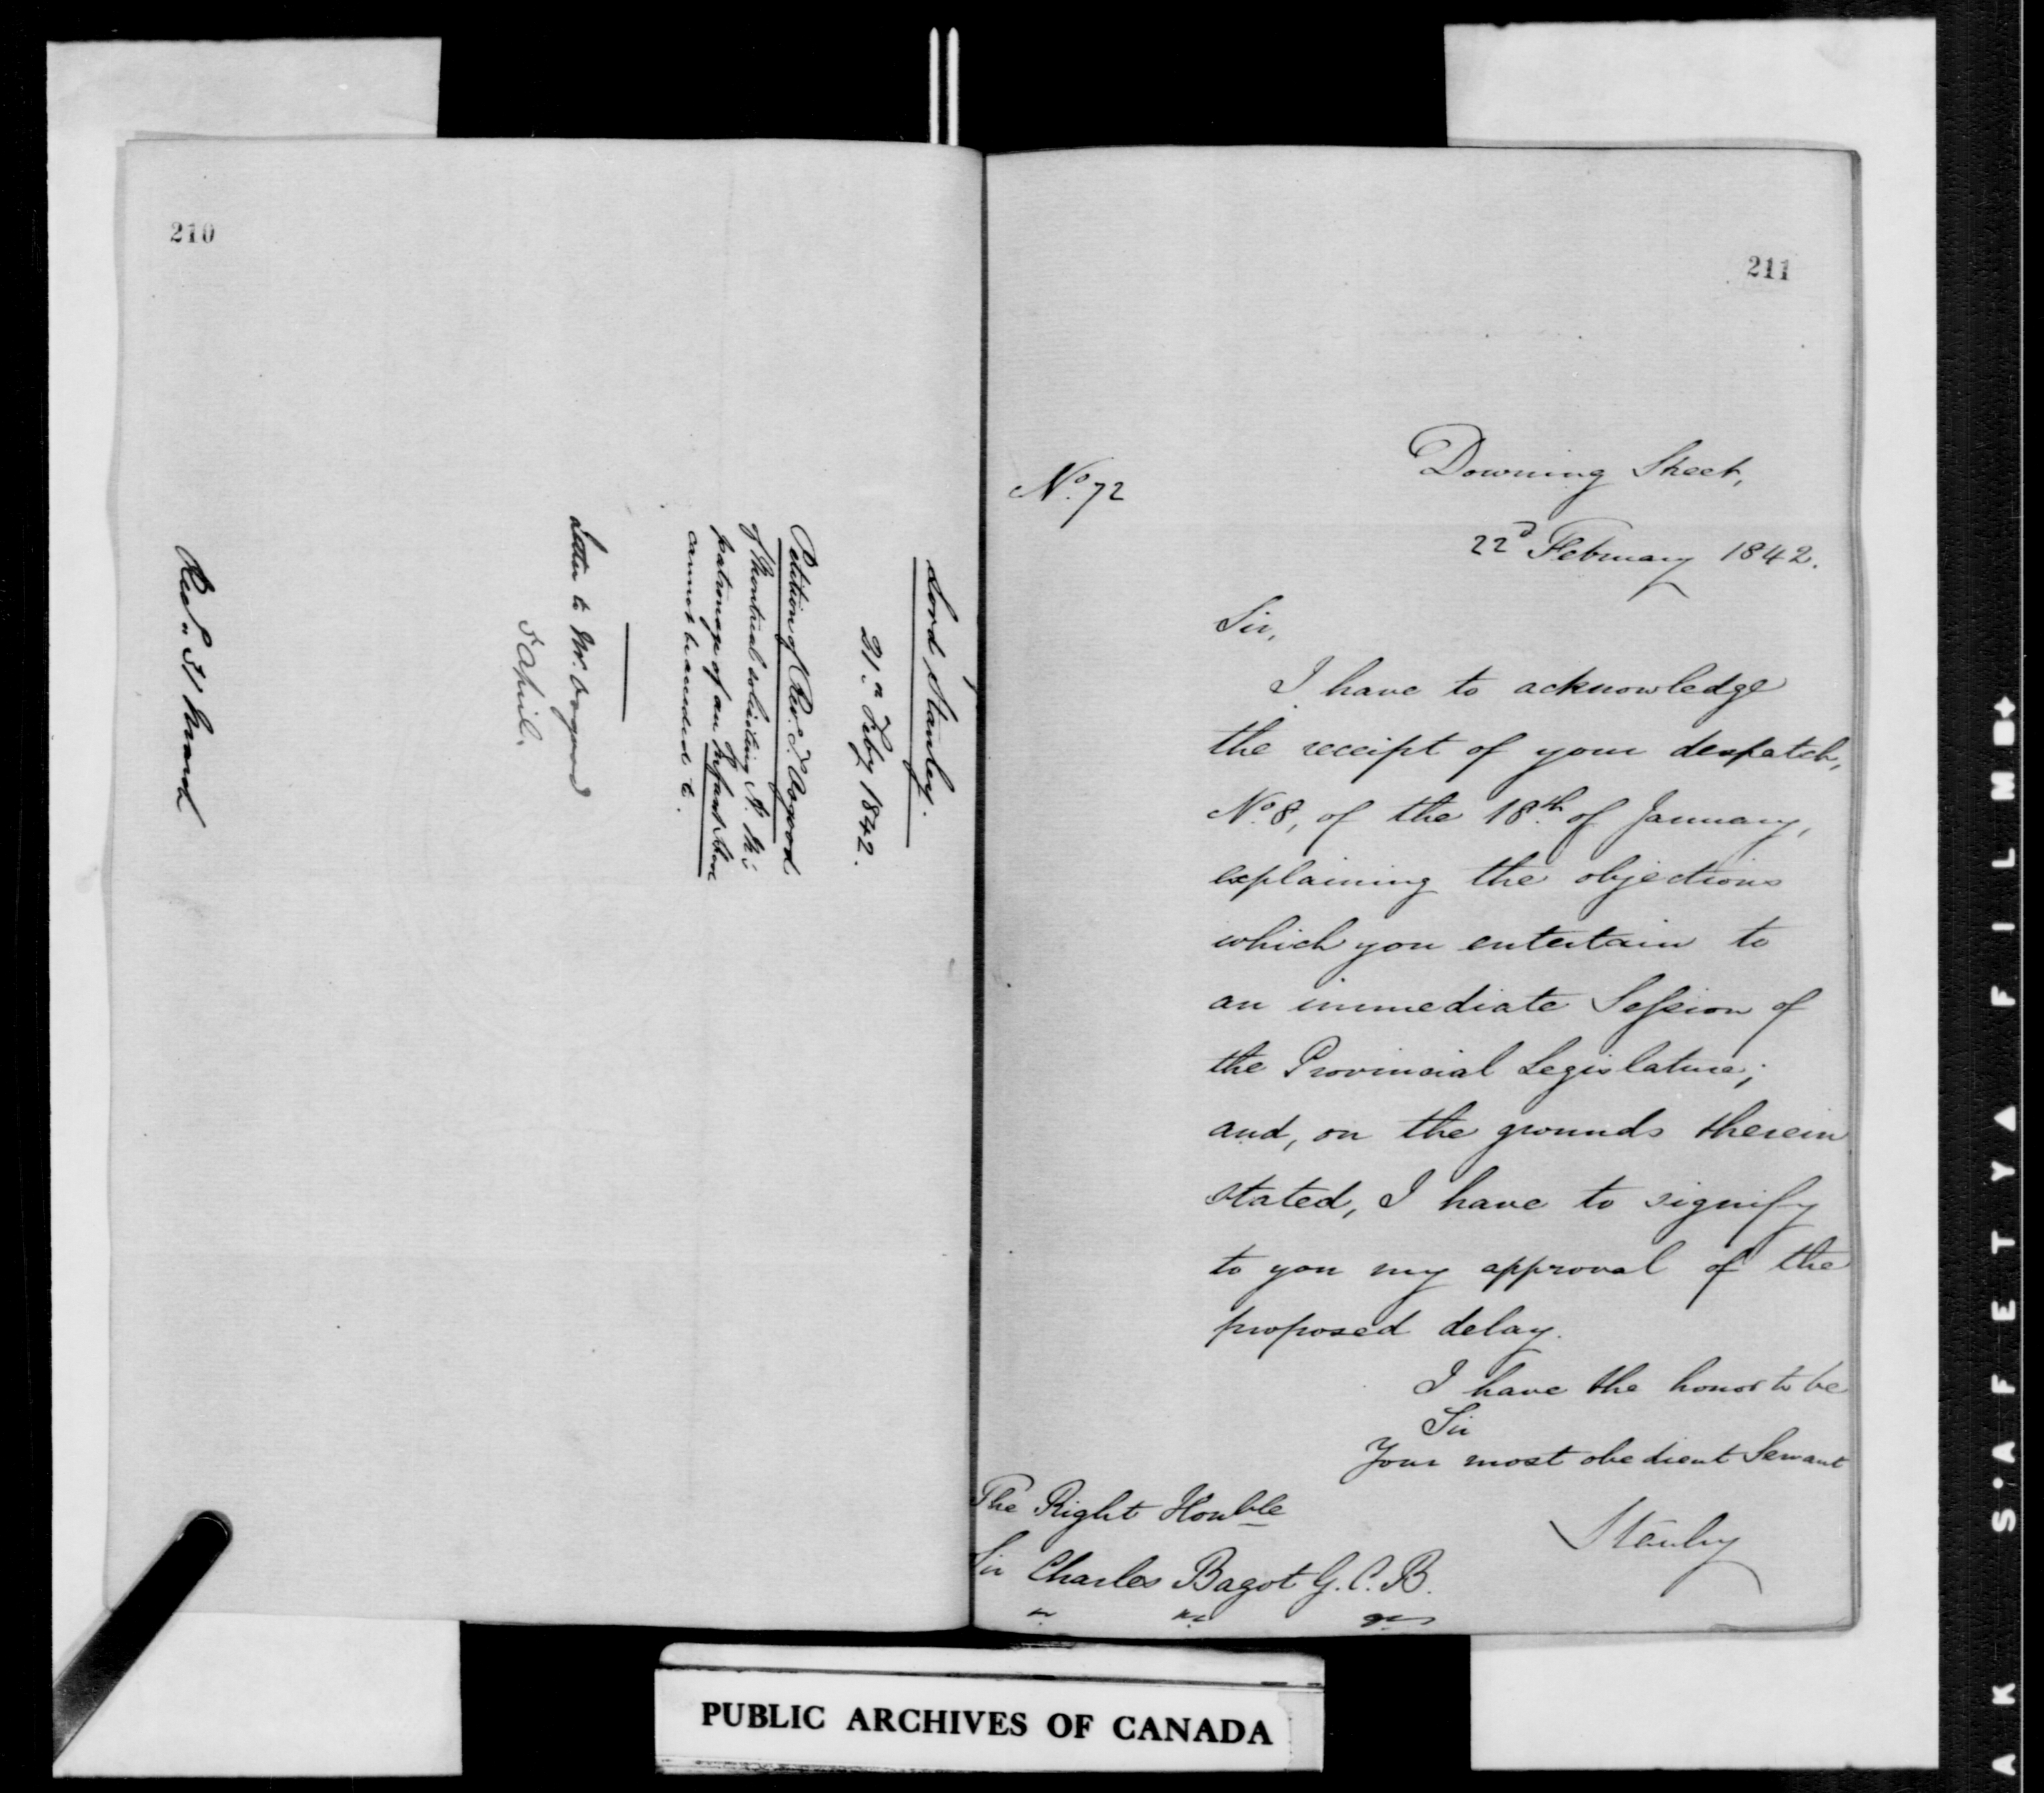 210
Lord Stanley.
21st Feby 1842.
Petition of Rev. J. Osgood
of Montreal soliciting H. M's
patronage of an Infant
cannot be acceded to.
Letter to Mr. Osgood
5 April.
Recd 31 March
211
No. 72
Downing Street,
22d February 1842.
Sir,
I have to acknowledge
the receipt of your despatch,
No. 8, of the 18th of January,
explaining the objections
which you entertain to
an immediate Session of
the Provincial Legislature;
and, on the grounds therein
stated, I have to signify
to you my approval of the
proposed delay.
I have the honor to be
Sir
Your most obedient Servant
Stanley
The Right Honble
Sir Charles Bagot G.C.B.
PUBLIC ARCHIVES OF CANADA
A K S'AFETY FILM